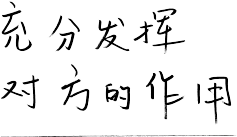 充分发挥
对方的作用